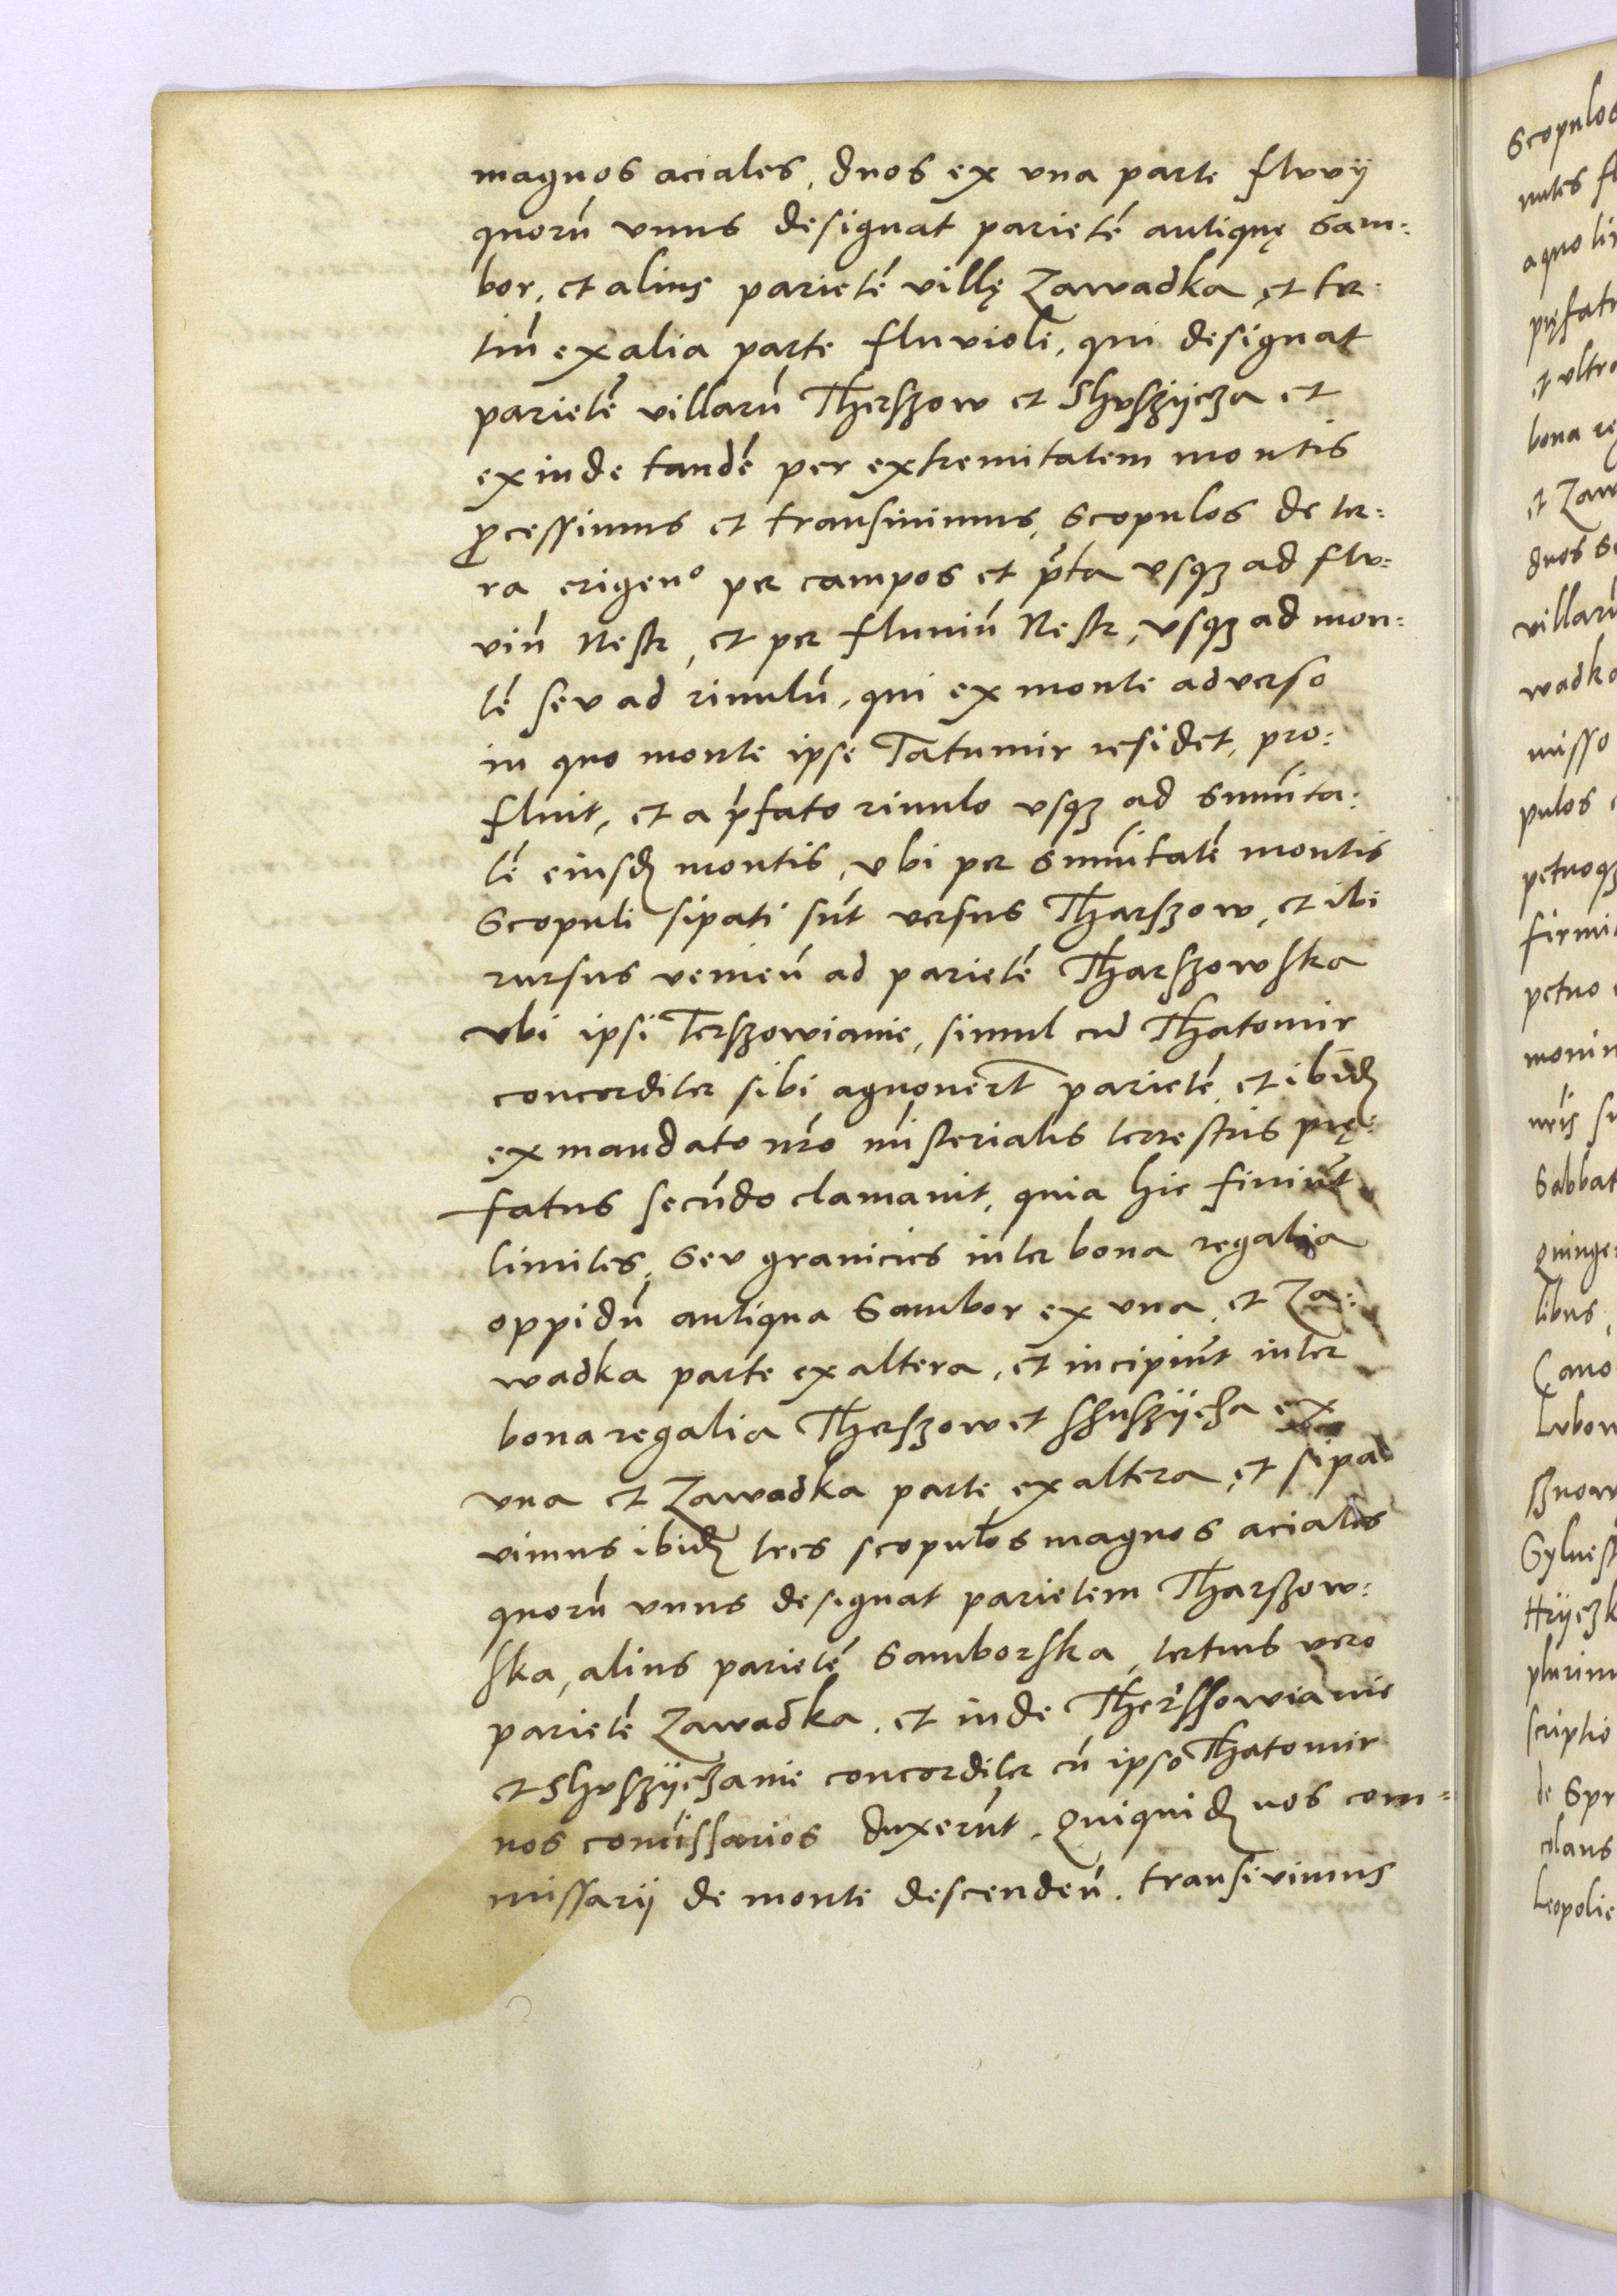 magnos aciales, duos ex vna parte fluvij
quorū vnus designat parietē antiquę Sam:
bor, et alius parietē villę Zawadka, et ter:
tiū ex alia parte fluvioli, qui designat
parietē villarū Therszow et Shvszijcza et
exinde tandē per extremitatem montis
ꝓcessimus et transivimus, Scopulos de ter:
ra erigenº per campos et p̄ta vsqꝫ ad flv:
viū Nestr, et per fluuiū Nestr, vsqꝫ ad mon:
tē sev ad riuulū, qui ex monte adverso
in quo monte ipse Tatumir residet, pro:
fluit, et a p̄fato riuulo vsqꝫ ad sum̄ita:
tē eiusdꝫ montis, vbi per Sum̄itatē montis
Scopuli sipati sūt versus Tharszow, et ibi
rursus venieū ad parietē Tharszowska
vbi ipsi Terszowianie, simul cū Thatomir
concorditer sibi agnouerūt parietē, et ibidꝫ
ex mandato nr̄o mīsterialis terrestris prę:
fatus secūdo clamauit, quia hic finiūt
limites, Sev granicies inter bona regalia
oppidū antiqua Sambor ex vna, et Za:
wadka parte ex altera, et incipiūt inter
bona regalia Therszow et Shuszijcza ex
vna et Zawadka parte ex altera, et sipa
vimus ibidꝫ tres scopulos magnos aciales
quorū vnus designat parietem Tharszow:
ska, alius parietē Samborska, tertius vero
parietē Zawadka, et inde Therssowianie
et Shvszijczanie concorditer cū ipso Thatomir
nos com̄issarios duxerūt, Quiquidꝫ nos com=
missarij de monte descendeū, transivimus